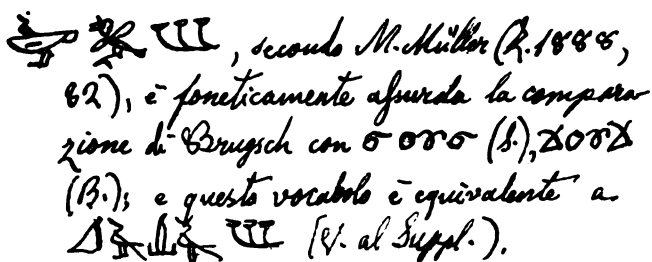 , secondo M. Müller (Z. 1888,
82), è foneticamente assurda la compara-
zione di Brugsch con (S.),
(B.); e questo vocabolo è equivalente a
(V. al Suppl.).